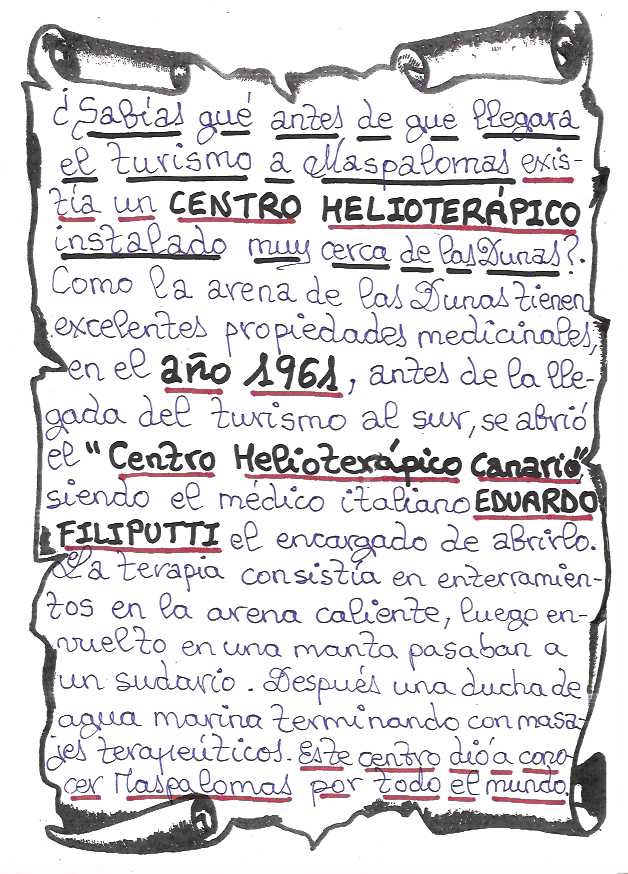 ¿Sabías qué antes de que llegara
el turismo a Maspalomas exis-
tía un CENTRO HELIOTERÁPICO
instalado muy cerca de las Dunas?.
Como la arena de las Dunas tienen
excelentes propiedades medicinales,
en el año 1961, antes de la lle-
gada del turismo al sur, se abrió
el "Centro Helioterápico Canario",
siendo el médico italiano EDUARDO
FILIPUTTI el encargado de abrirlo.
La terapia consistía en enterramien-
tos en la arena caliente, luego en-
vuelto en una manta pasaban a
un sudario. Después una ducha de
agua marina terminando con masa-
jes terapeúticos. Este centro dió a cono-
cer Maspalomas por todo el mundo.